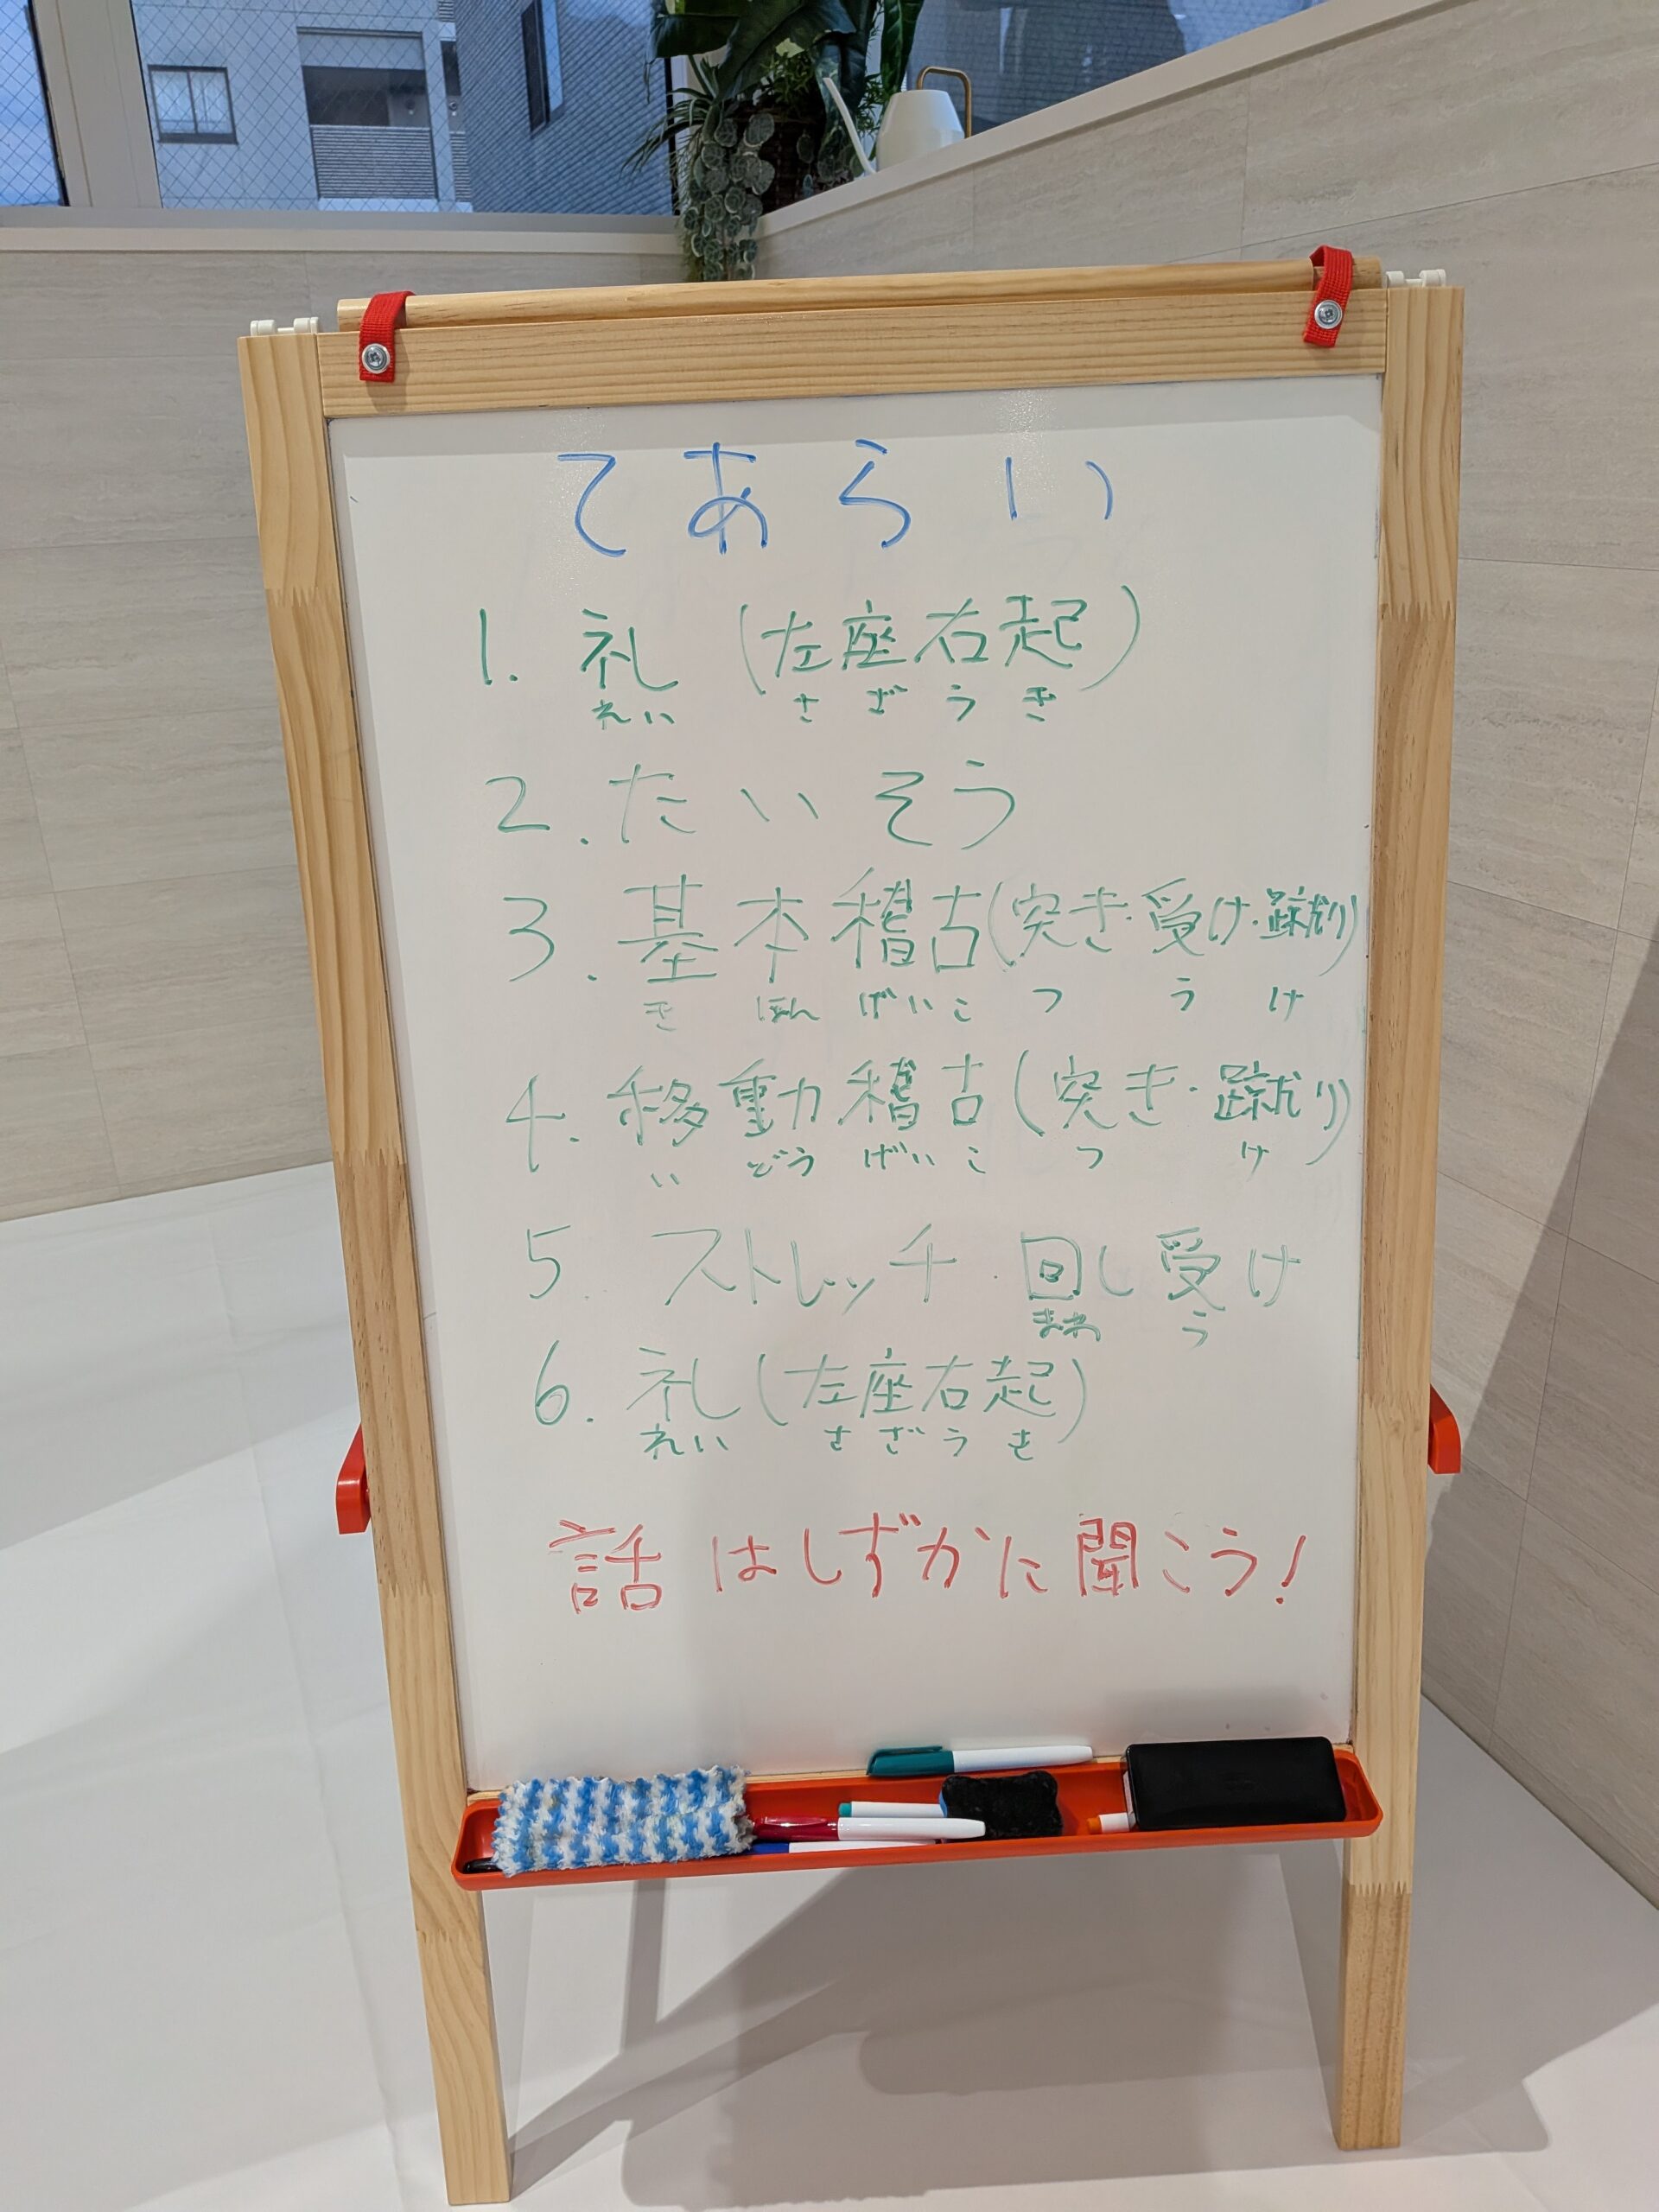 てあらい
1. 礼 (左座右起)
れい さ ざ う き
2. たいそう
3. 基本稽古(突き・受け・蹴り)
き ほん げいこ つ う け
4. 移動稽古(突き・蹴り)
い どう げいこ つ け
5. ストレッチ・回し受け
まわ う
6. 礼(左座右起)
れい さ ざ う き
話はしずかに聞こう!